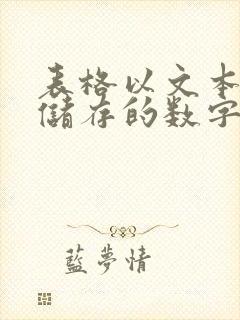 表格以文本
儲存的数字
藍夢情